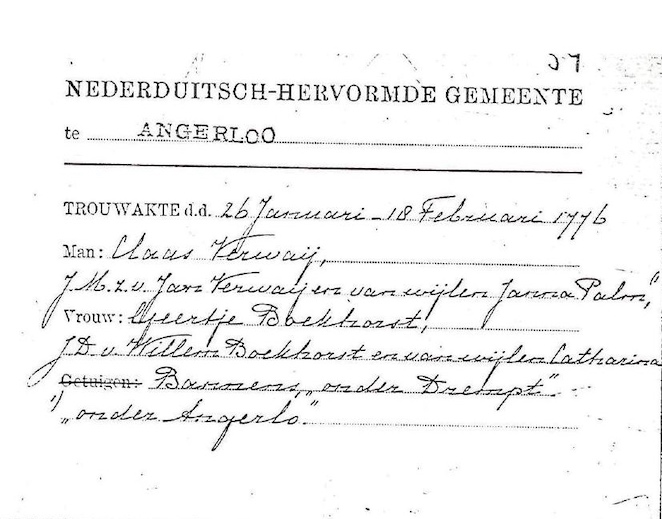 NEDERDUITSCH-HERVORMDE GEMEENTE
te ANGERLOO
TROUWAKTE d.d. 26 Januari - 18 Februari 1776
Man: Claas Verwaij,
J.M. z.v. Jan Verwaij en van wijlen Janna Palm,"
Vrouw: Geertje Boekhorst,
J D v. Willem Boekhorst en van wijlen Catharina
Getuigen: Barmens, „onder Drempt".
1) „onder Angerlo."